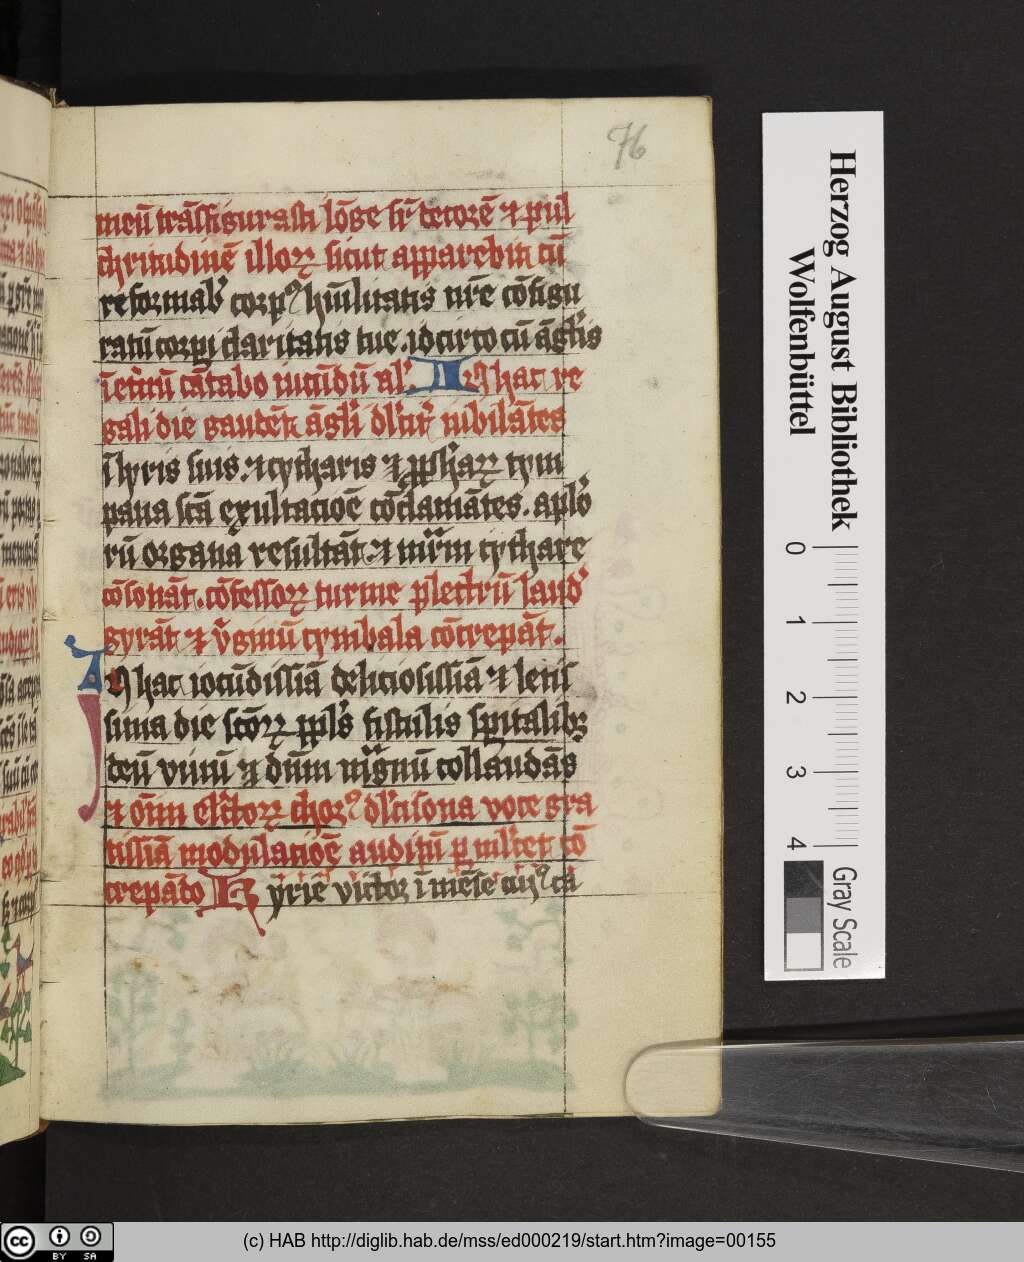 76
meū trāssigurasti lōge sr̄ decorē ⁊ pul
chritudinē illoꝝ sicut apparebit cū
reformabꝰ corpꝰ hūilitatis nr̄e cōfigu
ratū corpi claritatis tue. idcirco cū āglis
ī etnū cātabo iucūdū al. In hac re
gali die gaudēt āgli dlcit iubilātes
ī lyris suis. ⁊ cytharis ⁊ ꝓphaꝝ tym
pana scā exultatiōe cōclamātes. aplo
rū organa resultāt. ⁊ mrm cythare
cōsonāt. cōfessoꝝ turme plectrū laud
gyrāt ⁊ v̄ginū cymbala cōcrepāt.
In hac iocūdissiā deliciosissiā ⁊ letis
sima die scōꝝ ppls fistulis spitalibꝫ
deū viuū ⁊ dn̄m mgnū collaudās
⁊ oīm elctoꝝ chorꝰ dlcisona voce gra
tissiā modulatiōe auditū ꝑmlcet cō
crepādo Kyrie victor īmēse cuiꝰ cā
Herzog August Bibliothek
Wolfenbüttel
0 1 2 3 4
Gray Scale
cc BY SA
(c) HAB http://diglib.hab.de/mss/ed000219/start.htm?image=00155